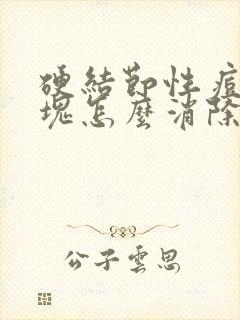 硬結節性痘
塊怎麼消除
公子雲思